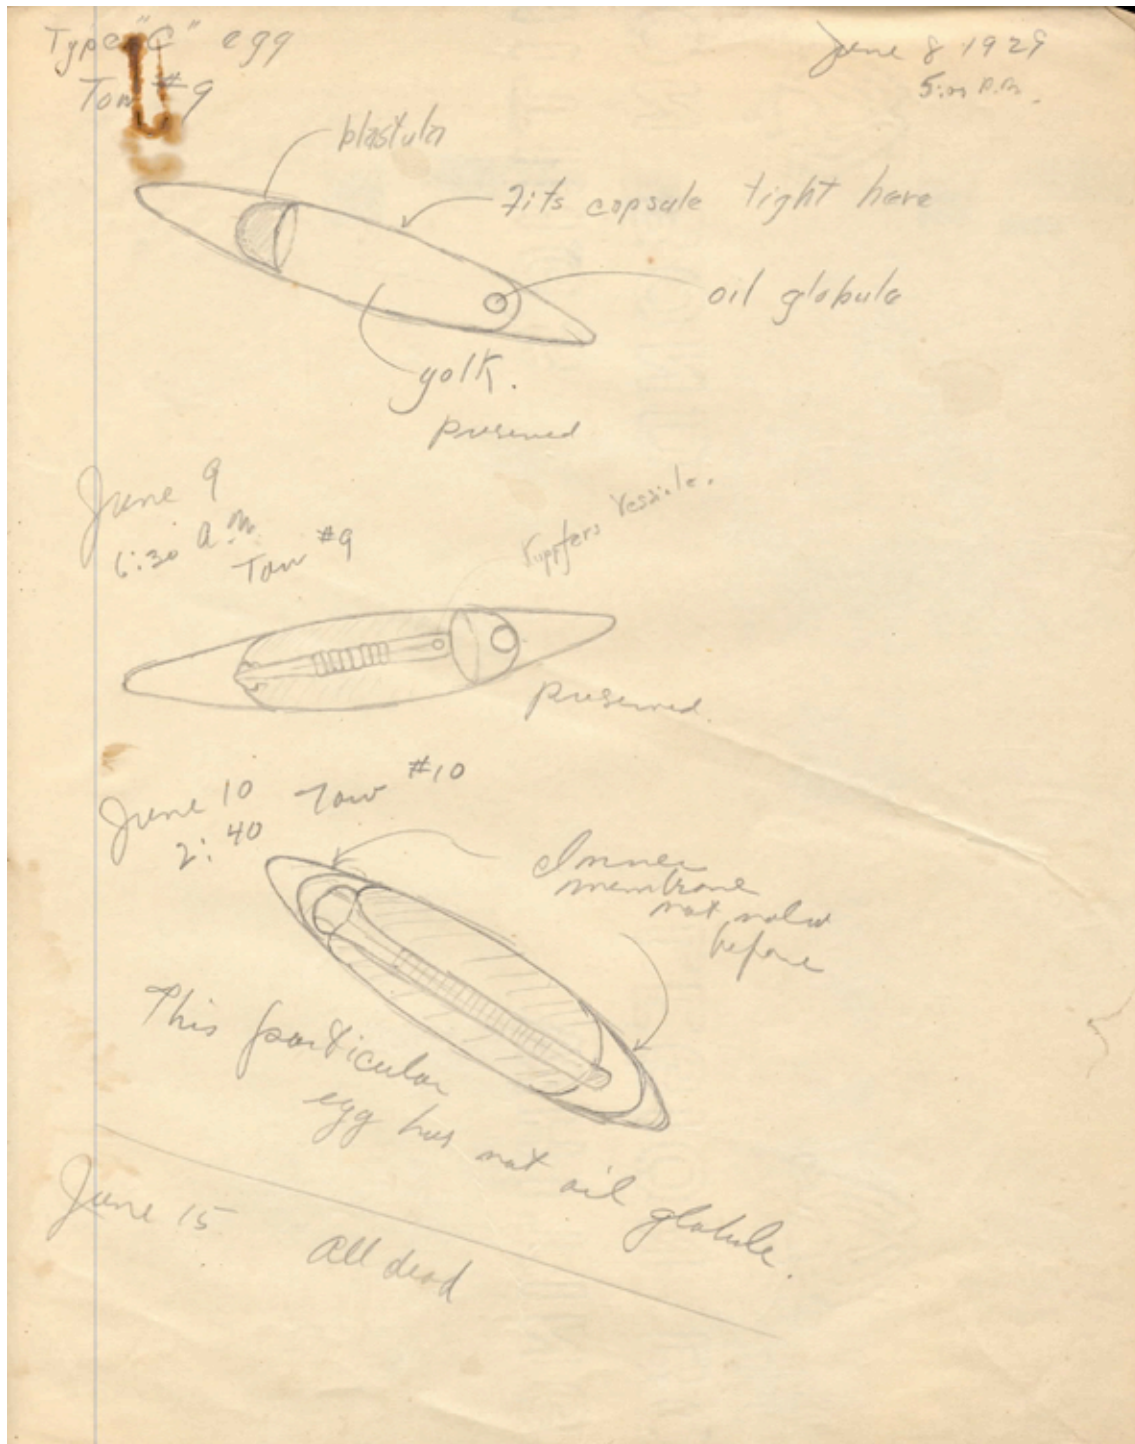 Type "C" egg
Tow #9
June 8 1929
5:00 P.M.
blastula
Fits capsule tight here
oil globule
yolk.
preserved
June 9
6:30 a.m.
Tow #9
Kuppfers Vessicle.
preserved.
June 10 Tow #10
2:40
Inner
membrane
not noted
before
This particular
egg has not oil globule.
June 15
All dead